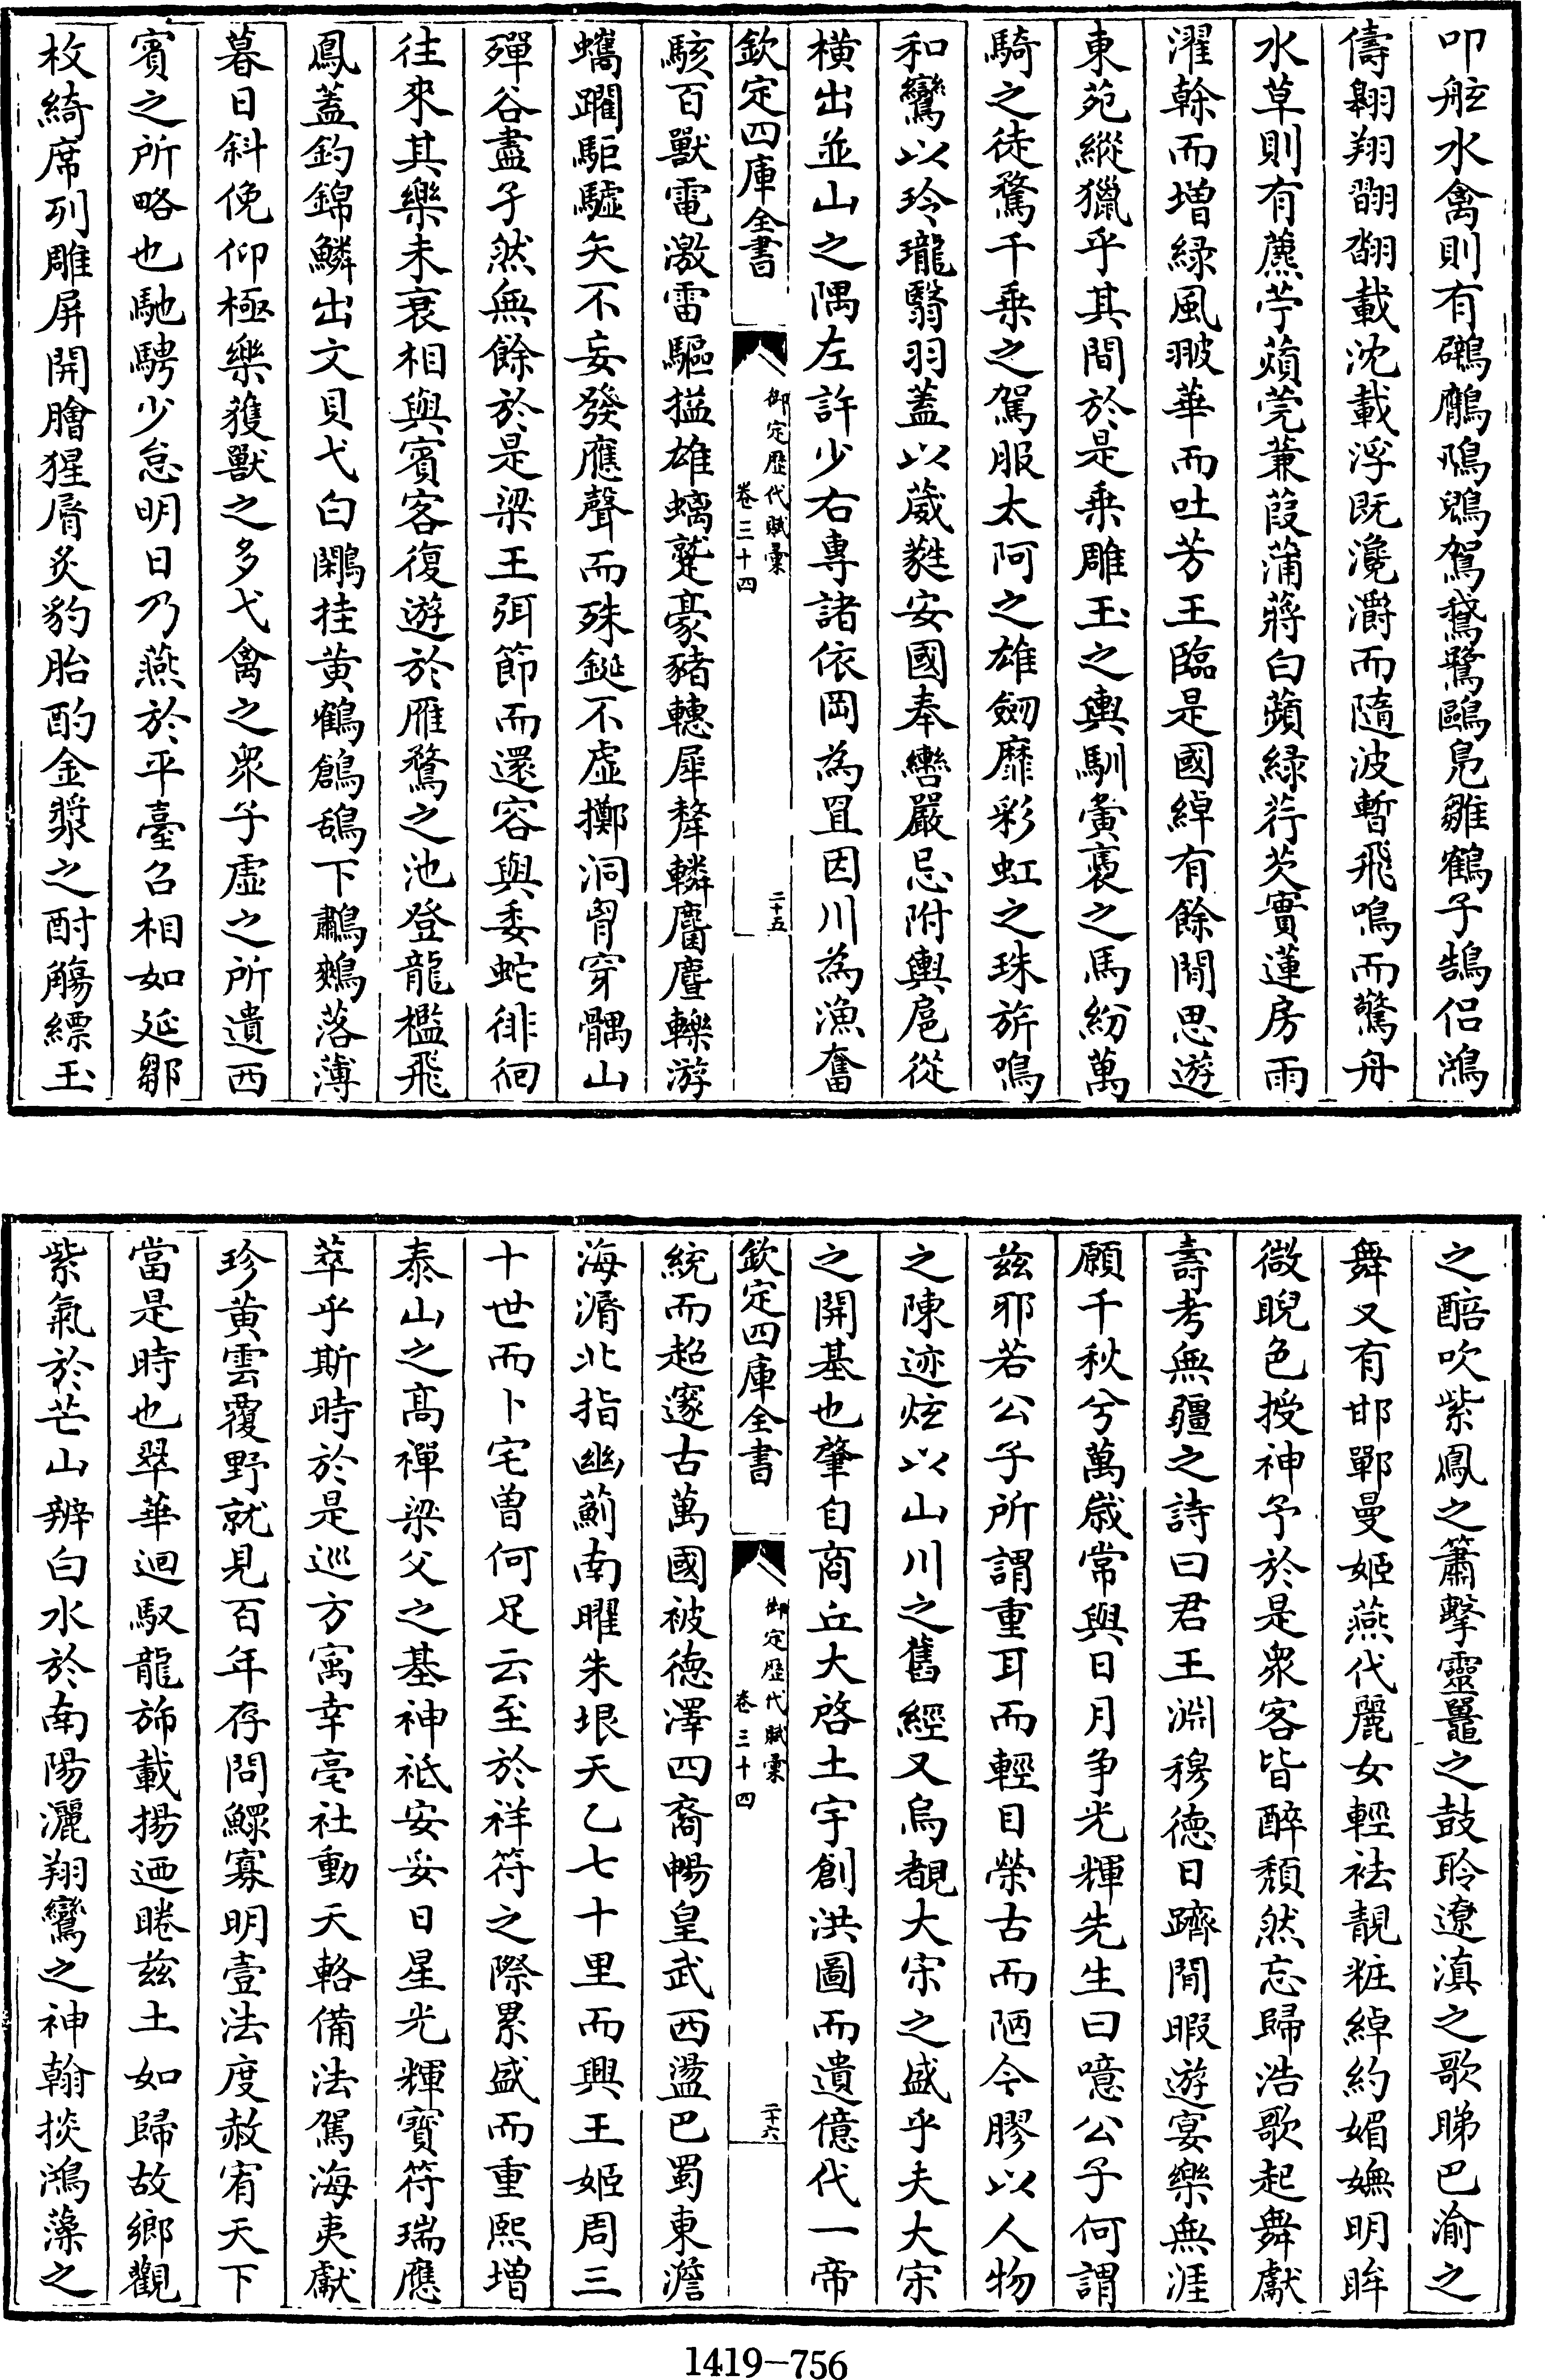 叩舷水禽則有鸊鷉鳵鶂鴐鵞鷺鷗鳧雛鶴子鵠侶鴻
儔翱翔翾翻載沈載浮既瀺灂而隨波暫飛鳴而驚舟
水草則有藨苧薠莞蒹葭蒲蔣白蘋緑荇芡實蓮房雨
濯榦而増緑風翍華而吐芳王臨是國綽有餘閒思遊
東苑縱獵乎其間於是乗雕玉之輿馴黄褭之馬紛萬
騎之徒騖千乗之駕服太阿之雄劒靡彩虹之珠旂鳴
和鸞以玲瓏翳羽蓋以葳蕤安國奉轡嚴忌附輿扈從
横出並山之隅左許少右專諸依岡為罝因川為漁奮
欽定四庫全書
御定歴代賦彙
卷三十四
二十五
駭百獸電激雷驅搤雄螭蹵豪豬轊犀犛轔麕麈轢游
蠵躍駏驉矢不妄發應聲而殊鋋不虚擲洞胷穿髃山
殫谷盡孑然無餘於是梁王弭節而還容與委蛇徘徊
往來其樂未衰相與賓客復遊於雁騖之池登龍檻飛
鳳蓋釣錦鱗出文貝弋白鷳挂黄鶴鶬鴰下鷫鷞落薄
暮日斜俛仰極樂獲獸之多弋禽之衆子虚之所遺西
賓之所略也馳騁少怠明日乃燕於平臺召相如延鄒
枚綺席列雕屏開膾猩脣炙豹胎酌金漿之酎觴縹玉
之醅吹紫鳳之簫擊靈鼉之鼓聆遼滇之歌睇巴渝之
舞又有邯鄲曼姬燕代麗女輕袪靚粧綽約媚嫵明眸
微睨色授神予於是衆客皆醉頽然忘歸浩歌起舞獻
壽考無疆之詩曰君王淵穆徳日躋閒暇遊宴樂無涯
願千秋兮萬歳常與日月争光輝先生曰噫公子何謂
兹邪若公子所謂重耳而輕目榮古而陋今膠以人物
之陳迹炫以山川之舊經又烏覩大宋之盛乎夫大宋
之開基也肇自商丘大啓土宇創洪圖而遺億代一帝
欽定四庫全書
御定歴代賦彙
卷三十四
二十六
統而超邃古萬國被徳澤四裔暢皇武西盪巴蜀東澹
海漘北指幽薊南曜朱垠天乙七十里而興王姬周三
十世而卜宅曽何足云至於祥符之際累盛而重熙増
泰山之髙禪梁父之基神祗安妥日星光輝寳符瑞應
萃乎斯時於是巡方寓幸亳社動天輅備法駕海夷獻
珍黄雲覆野就見百年存問鰥寡明壹法度赦宥天下
當是時也翠華迴馭龍斾載揚迺睠兹土如歸故鄉觀
紫氣於芒山辨白水於南陽灑翔鸞之神翰掞鴻藻之
1419-756